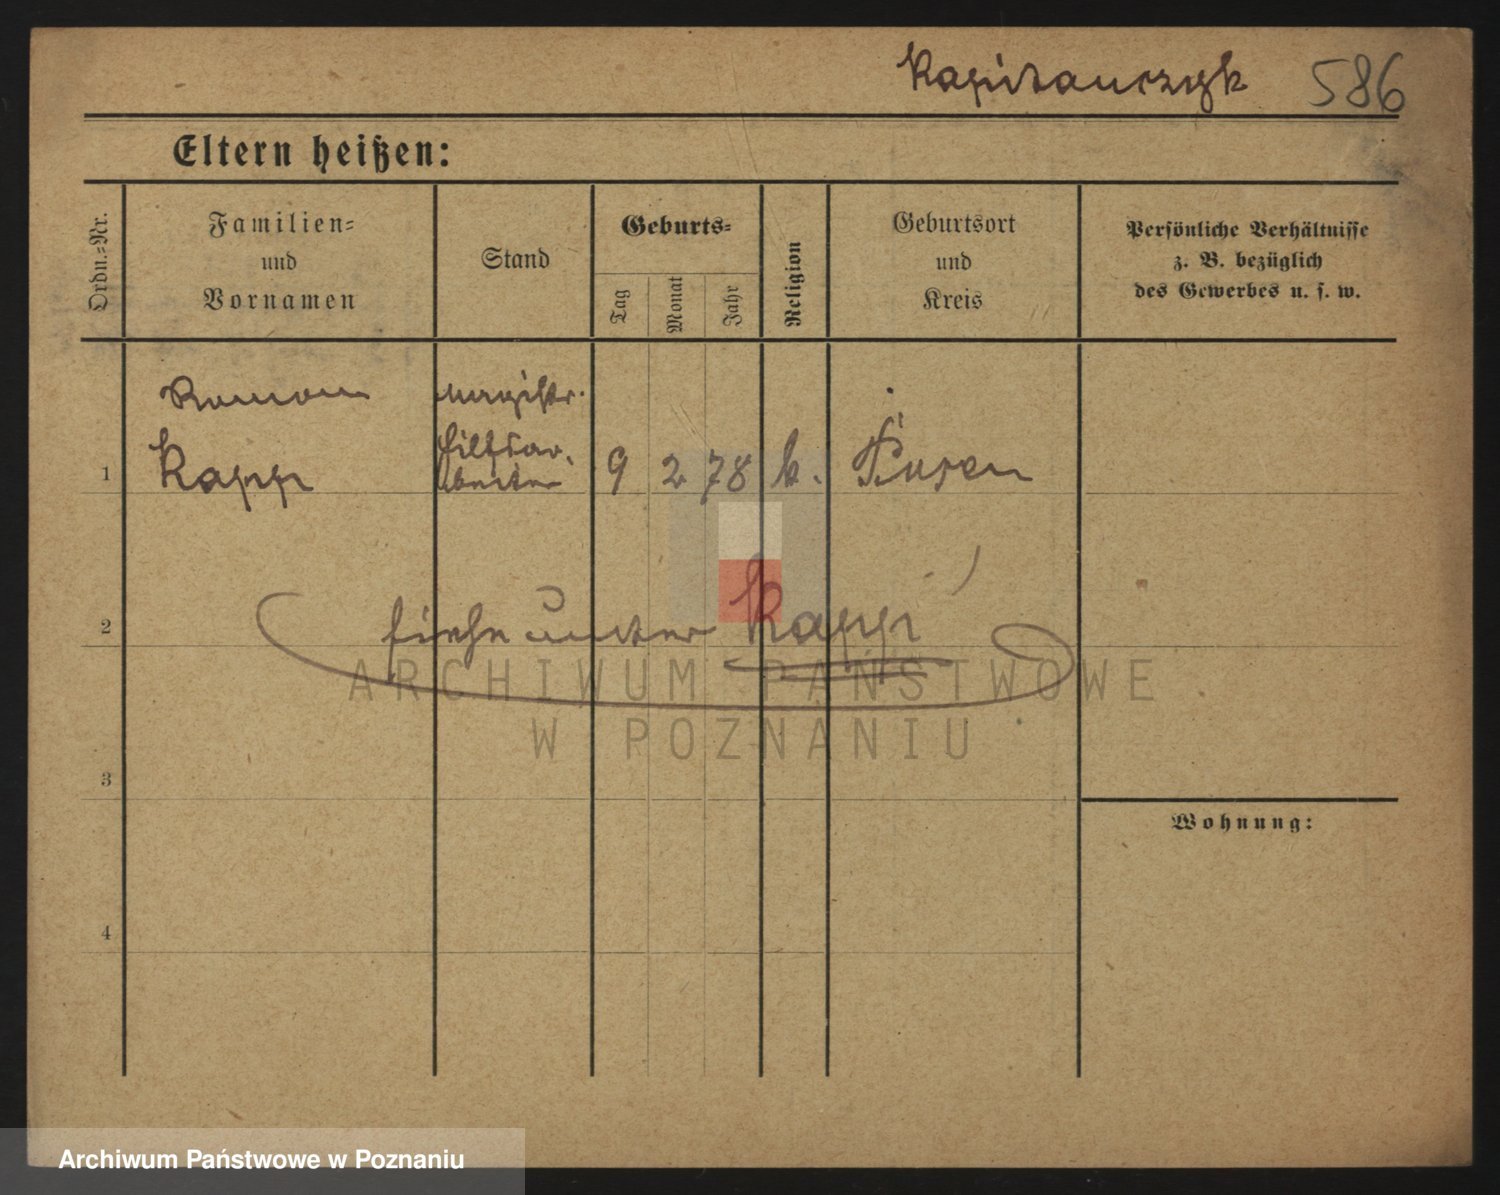 Kapitanczyk 586
Eltern heißen:
Ordn.=Nr.
Familien=
und
Vornamen
Stand
Geburts=
Tag
Monat
Jahr
Religion
Geburtsort
und
Kreis
Persönliche Verhältnisse
z. B. bezüglich
des Gewerbes u. s. w.
Roman magistr.
Kapp hilfsar.
1 beiter 9 2 78 k. Posen
2 siehe unter Kapp
ARCHIWUM PAŃSTWOWE
W POZNANIU
3
Wohnung:
4
Archiwum Państwowe w Poznaniu